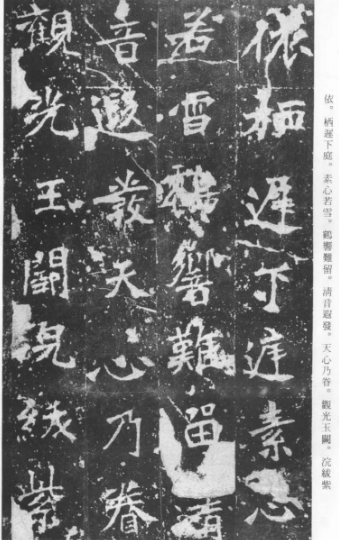 依。栖遲下庭。素心若雪。鶴響難留。清音遐發。天心乃眷。觀光玉闕。浣紱紫
依栖遲下庭素心
若雪鶴響難留清
音遐發天心乃眷
觀光王闕浣紱紫